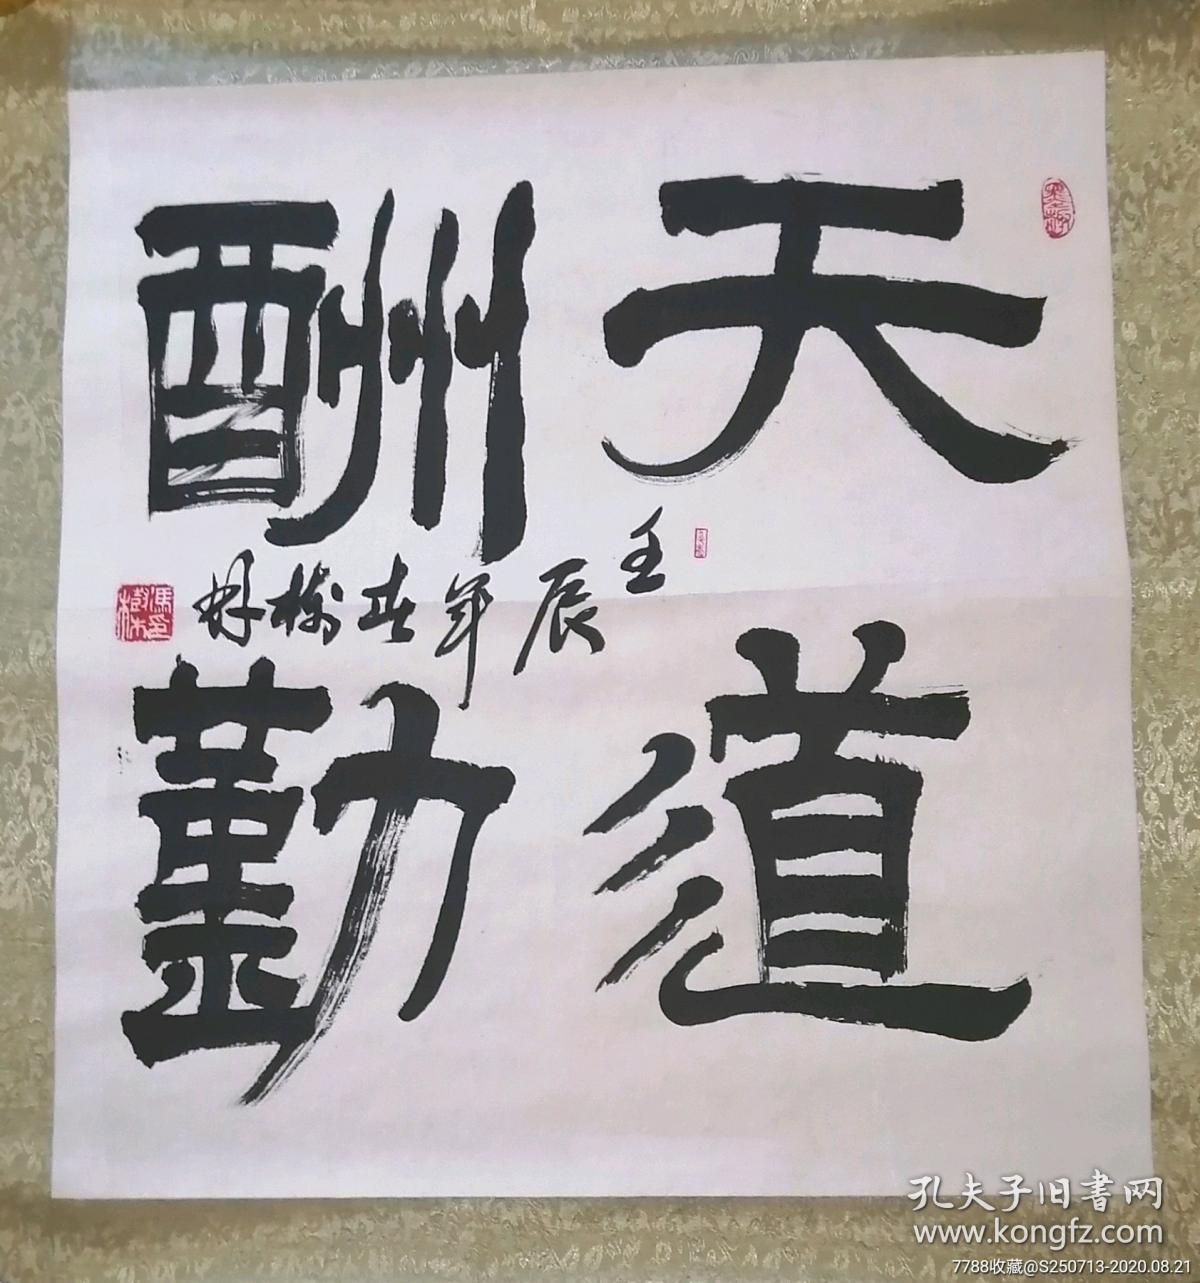 天道
酬勤
壬辰年春樹林
馮印樹林
孔夫子旧書网
www.kongfz.com
7788收藏@S250713-2020.08.21